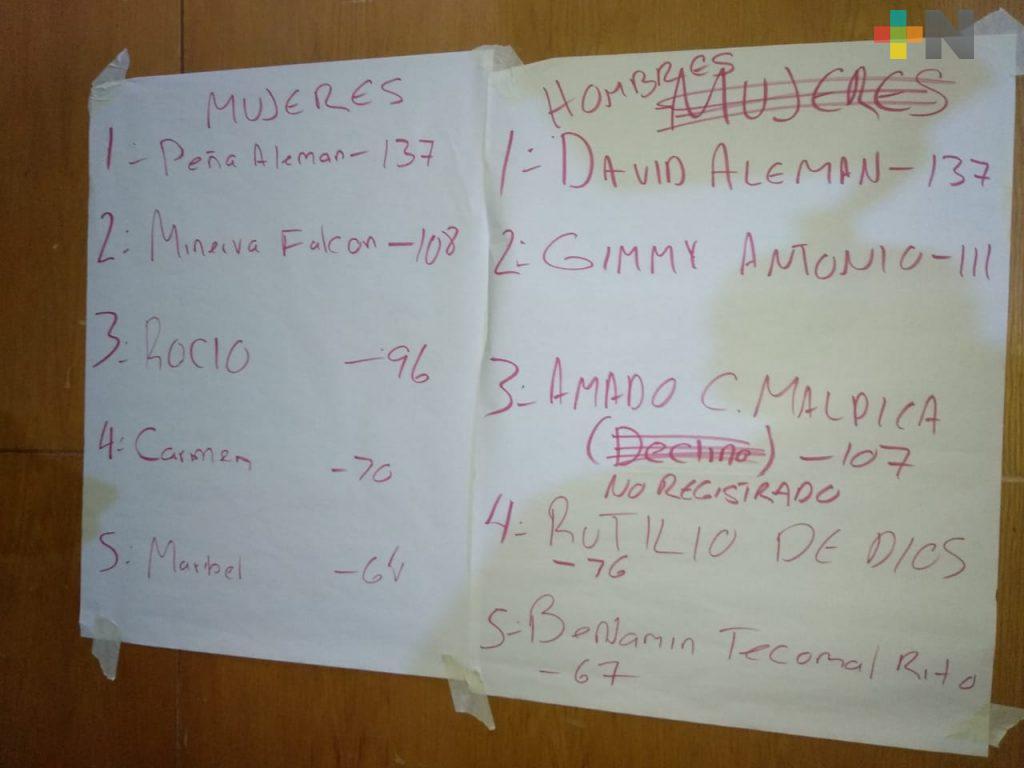 +N
MUJERES
1- Peña Aleman- 137
2: Minerva Falcon -108
3- ROCIO -96
4: Carmen -70
5: Maribel -64
HOMBRES MUJERES
1- DAVID ALEMAN- 137
2: GIMMY ANTONIO-111
3- AMADO C. MALPICA
(Declino) -107
NO REGISTRADO
4: RUTILIO DE DIOS
-76
5- BeNJAMIN Tecomal Rito
-67